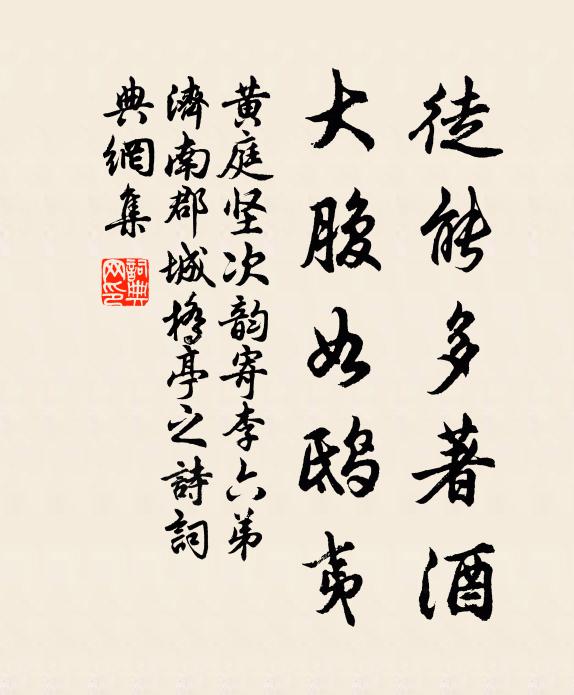 徒能多著酒
大腹如鸱夷
黄庭坚次韵寄李六弟
濟南郡城橋亭之詩詞
典網集
詞典网印